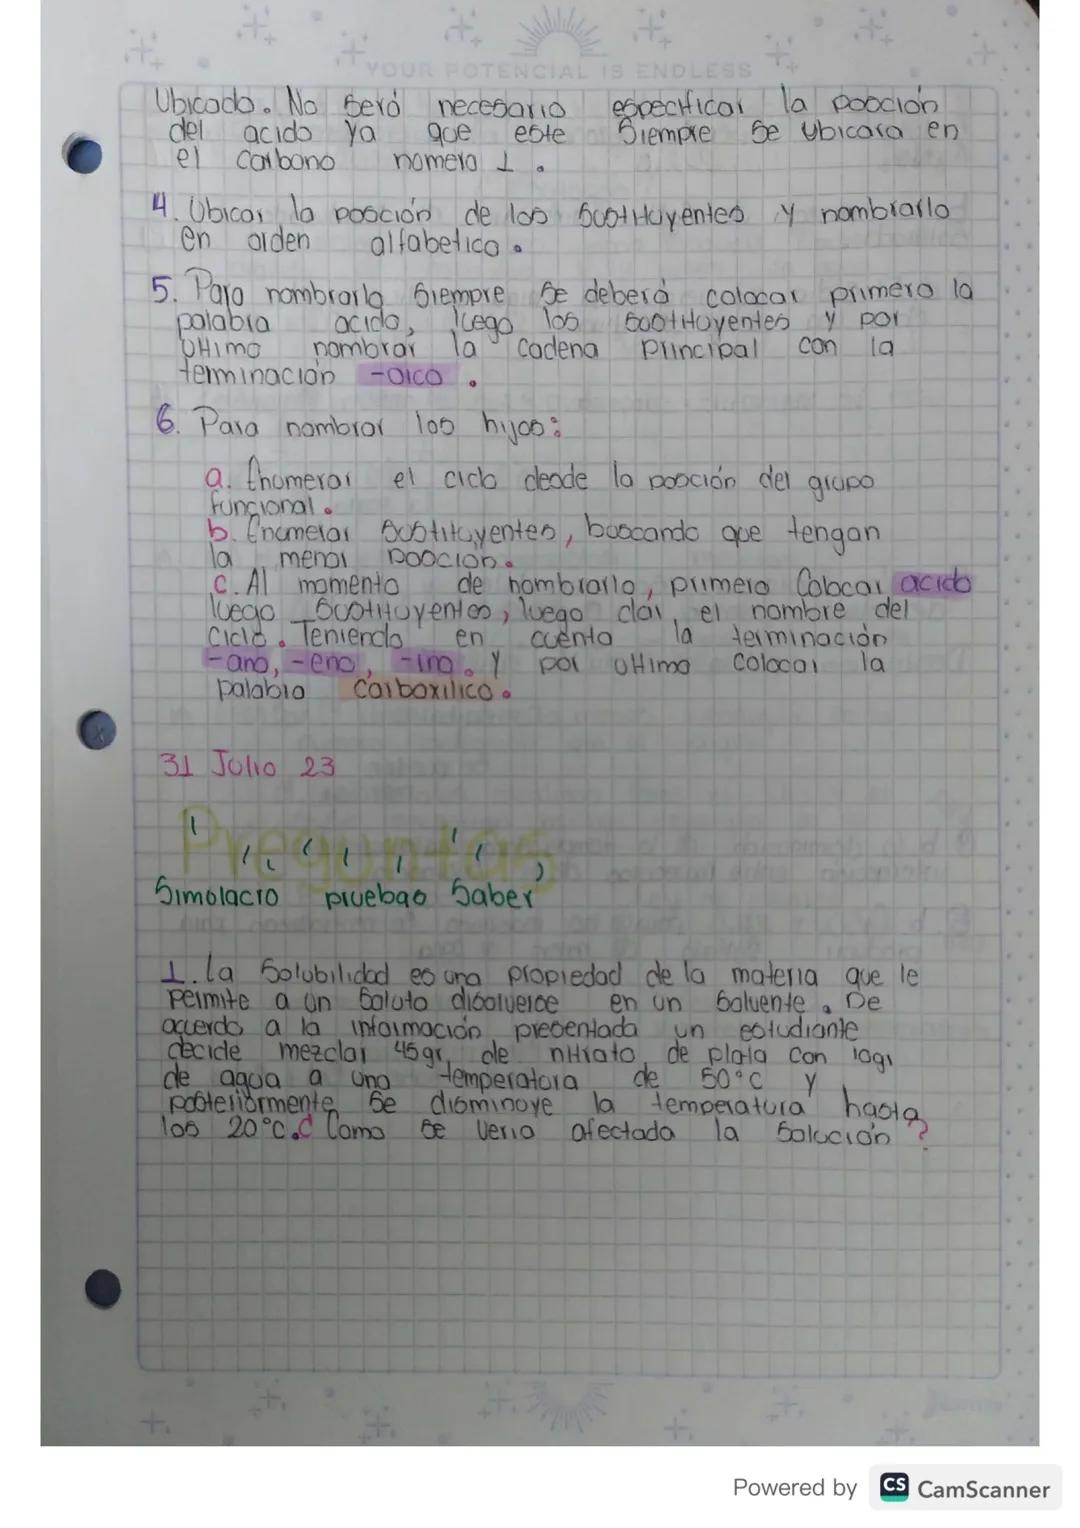 YOUR POTENCIAL IS ENDLESS
Ubicado. No será necesario especificar la posción
del acido ya que este siempre se ubicara en
el carbono numero 1.
4. Ubicar la posción de los sustituyentes y nombrarlo
en orden alfabetico.
5. Para nombrarlo siempre se deberá colocar primero la
palabra acido, luego los sustituyentes y por
ultimo nombrar la cadena principal con la
terminación -oico.
6. Para nombrar los hijos:
a. Enumerar el ciclo desde la posción del grupo
funcional.
b. Enumerar sustituyentes, buscando que tengan
la menor posción.
c. Al momento de nombrarlo, primero colocar acido
luego sustituyentes, luego dar el nombre del
ciclo. Teniendo en cuenta la terminación
-ano, -eno, -ino. Y por ultimo colocar la
palabra carboxilico.
31 Julio 23
Preguntas
Simulacro pruebas Saber
1. La solubilidad es una propiedad de la materia que le
permite a un soluto disolverse en un solvente. De
acuerdo a la información presentada un estudiante
decide mezclar 45gr, de nitrato, de plata con 10gr
de agua a una temperatura de 50°C y
posteriormente se disminuye la temperatura hasta
los 20°C. ¿Como se veria afectada la solución?
Powered by CS CamScanner